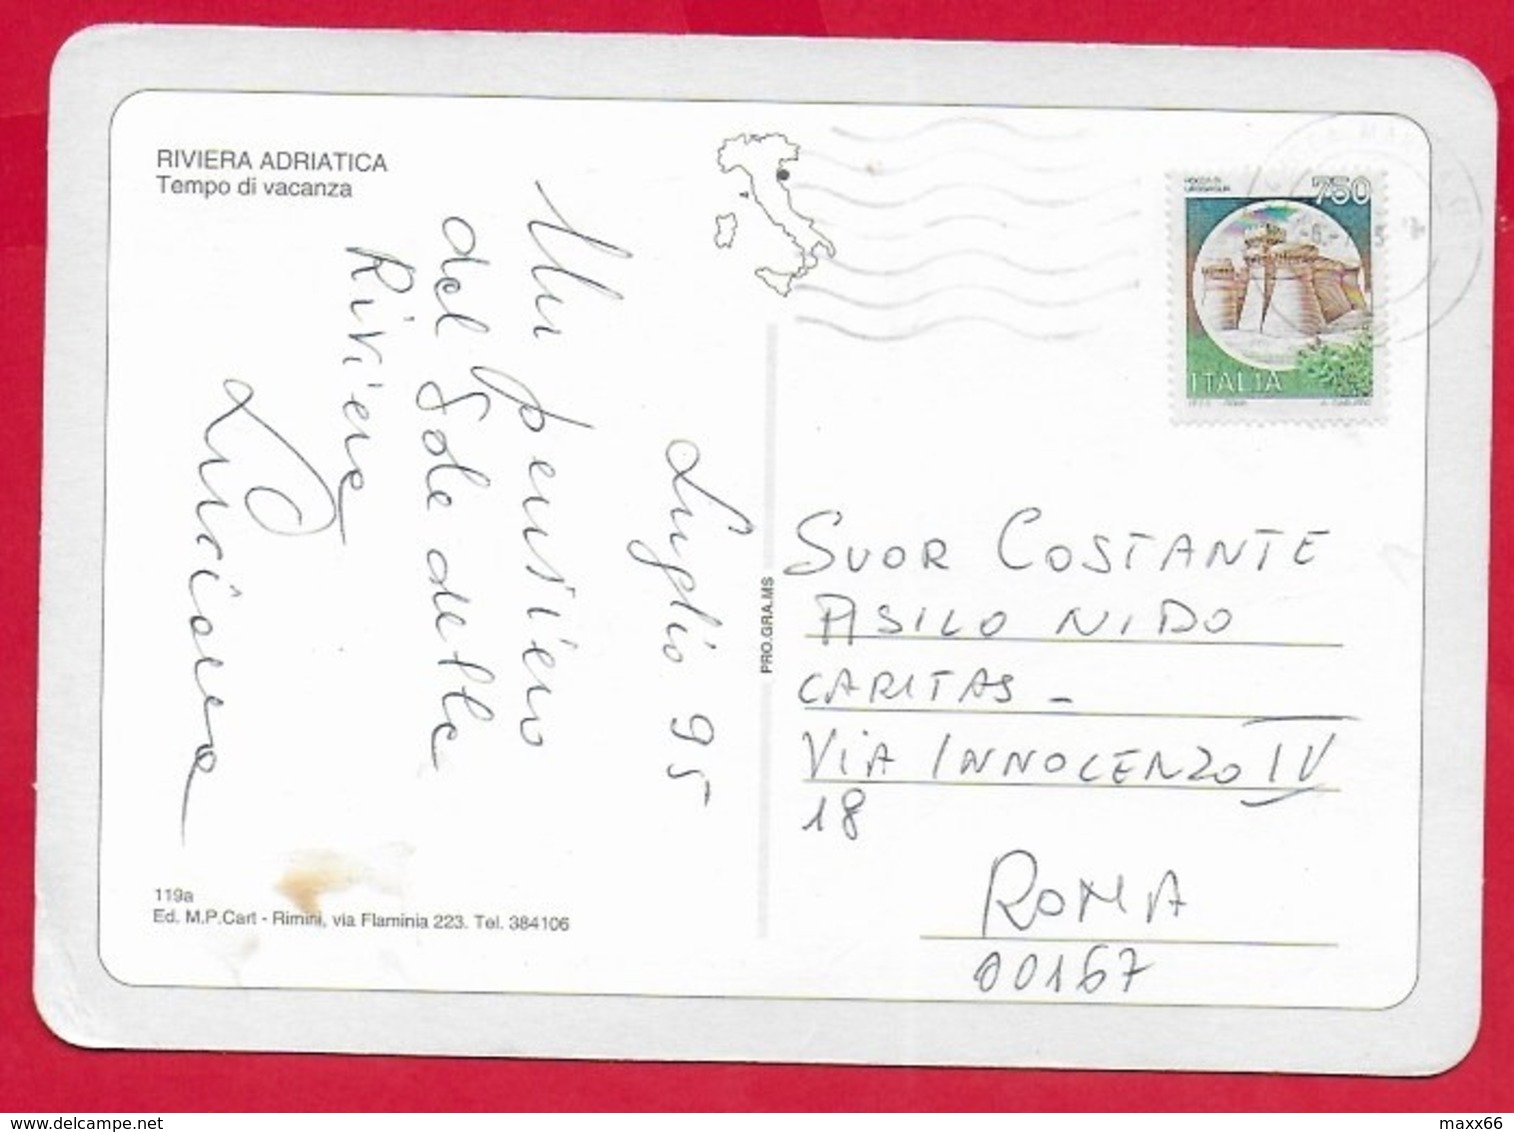 RIVIERA ADRIATICA
Tempo di vacanza
Luglio 95
Un pensiero
dal Sole della
Riviera
Luciana
119a
Ed. M.P.Cart - Rimini, via Flaminia 223. Tel. 384106
PRO.GRA.MS
750
ITALIA
SUOR COSTANTE
ASILO NIDO
CARITAS -
VIA INNOCENZO IV
18
ROMA
00167
delcampe.net
maxx66